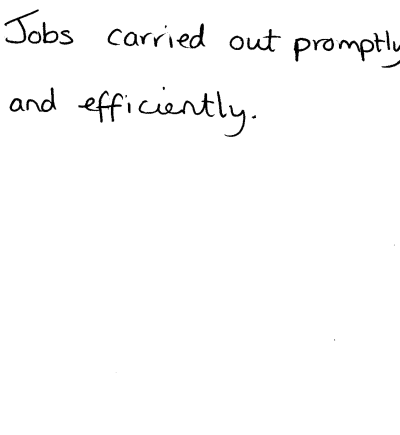 Jobs carried out promptly
and efficiently.